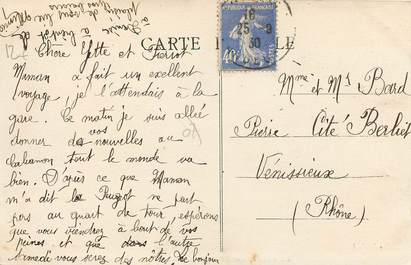 CARTE
Chère Yette et Pierrot
Maman a fait un exellent
voyage, je l'attendais à la
gare. Ce matin je suis allée
donner de vos nouvelles au
Cabanon tout le monde va
bien. D'après ce que Maman
m'a dit la Peugeot ne part
pas au quart de tour, espérons
que vous viendrez à bout de vos
peines et que dans l'autre
samedi vous serez des nôtres. Le bonjour
Mme et Mr Bard
Pierre Cité Berliet
Vénissieux
(Rhône)
16
25 - 9
30
40c